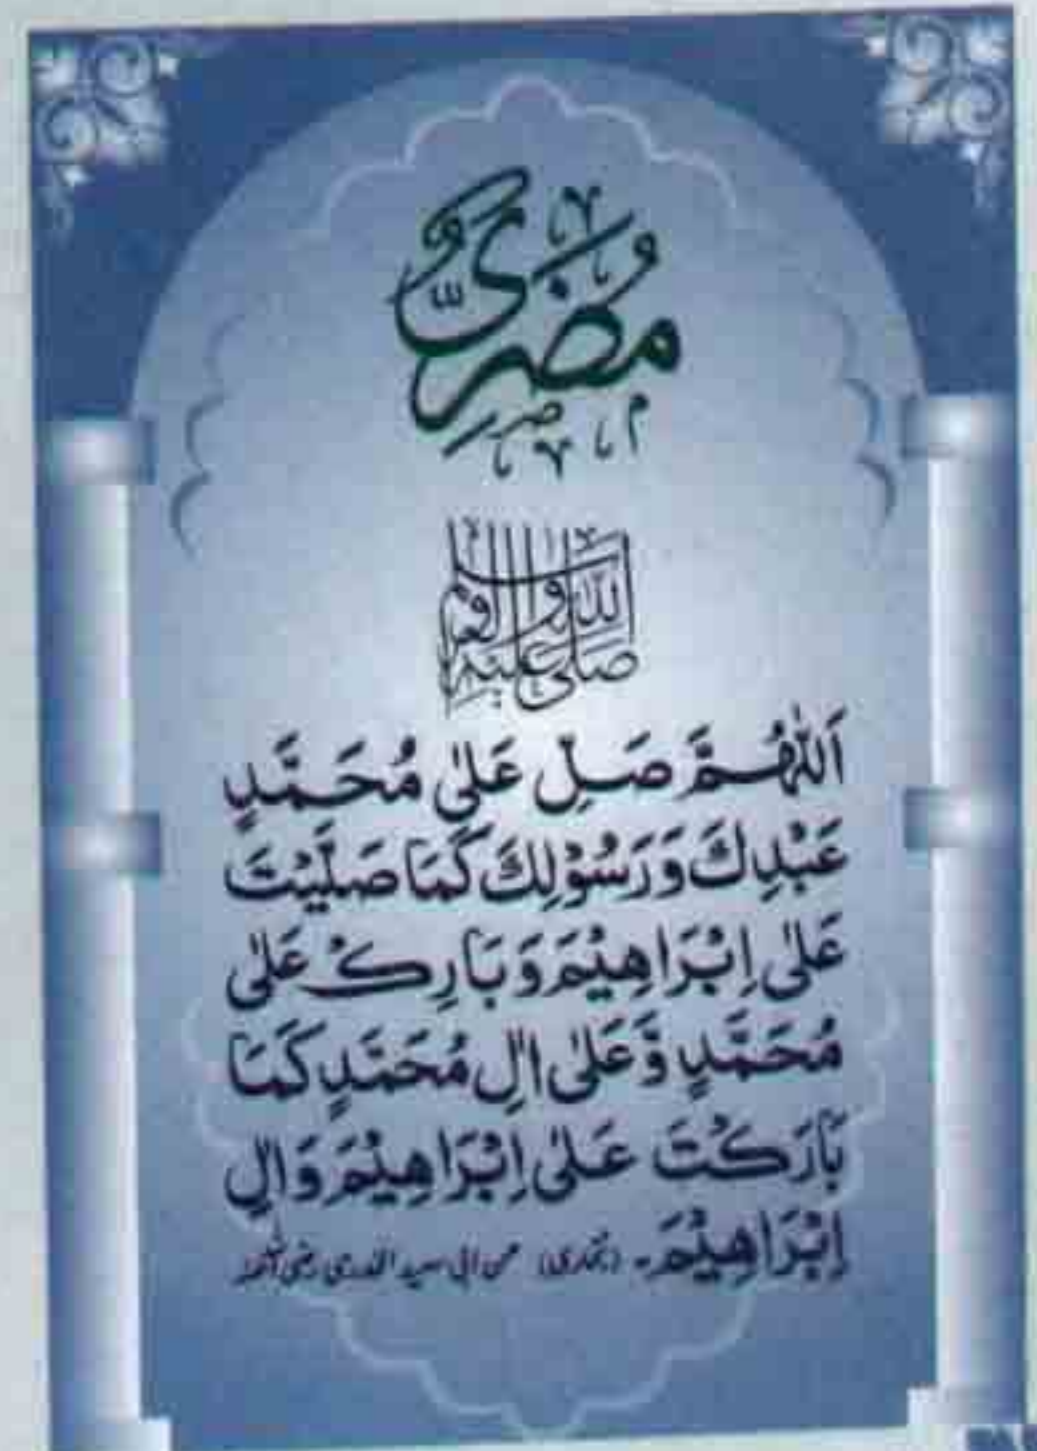 مُضَرِيٌّ
صلى الله عليه وآله وسلم
اَللّٰهُمَّ صَلِّ عَلٰى مُحَمَّدٍ
عَبْدِكَ وَرَسُوْلِكَ كَمَا صَلَّيْتَ
عَلٰى اِبْرَاهِيْمَ وَبَارِكْ عَلٰى
مُحَمَّدٍ وَّعَلٰى اٰلِ مُحَمَّدٍ كَمَا
بَارَكْتَ عَلٰى اِبْرَاهِيْمَ وَاٰلِ
اِبْرَاهِيْمَ۔ (بخاری) عن ابی سعید الخدری رضی اللہ عنہ